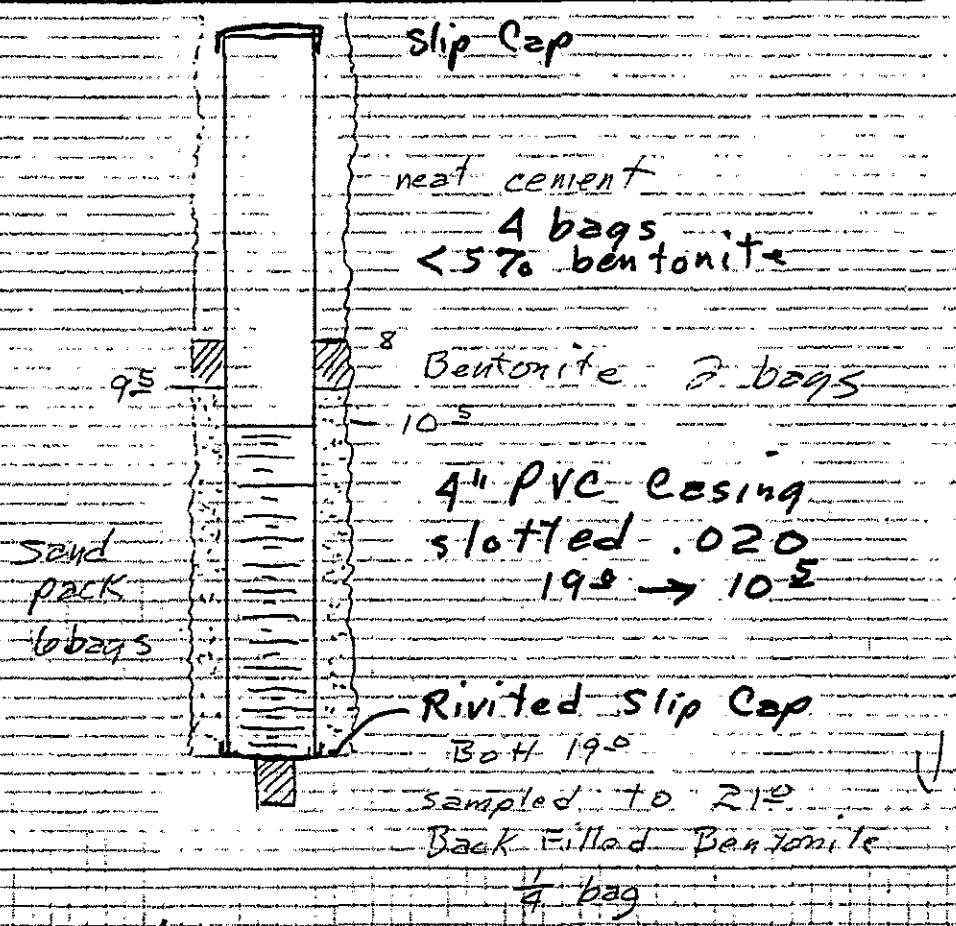 Slip Cap
neat cement
4 bags
<5% bentonite
8
Bentonite 2 bags
9⁵
10⁵
4" PVC Casing
slotted .020
19⁰ → 10⁵
Sand
pack
6 bags
Rivited Slip Cap
BOH 19⁰
sampled to 21⁰
Back Filled Bentonite
1/4 bag